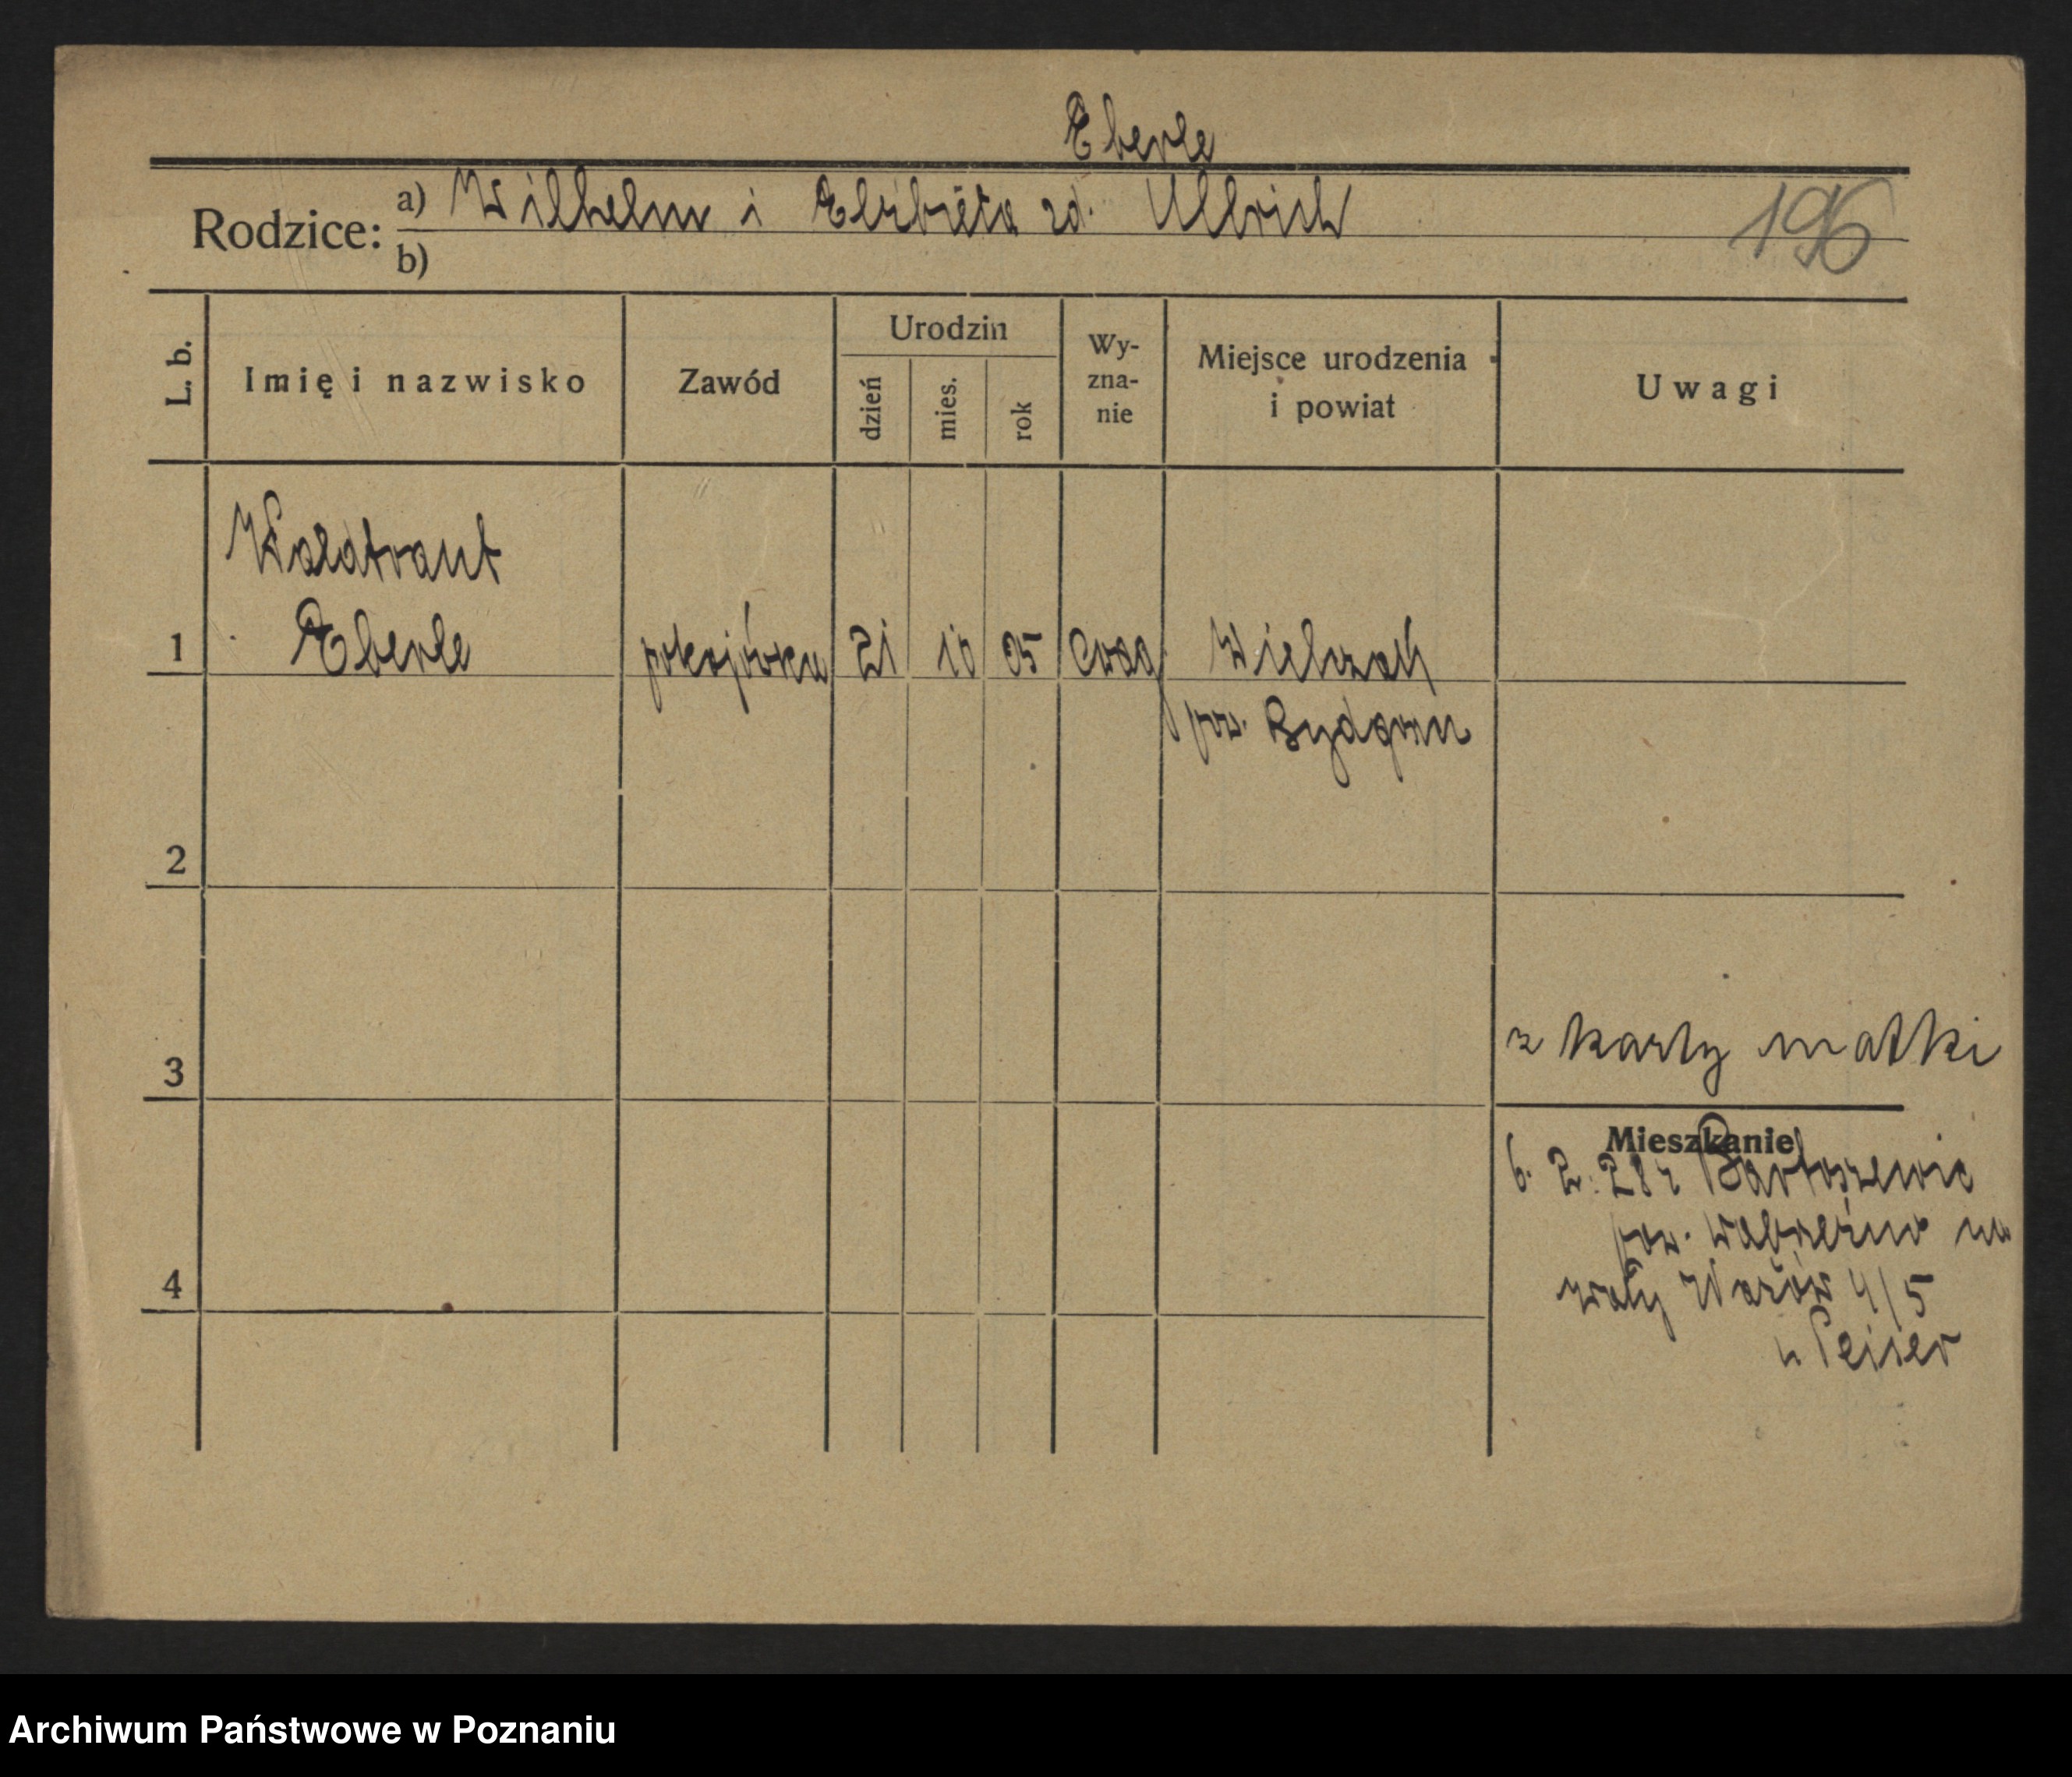 Eberle
Rodzice: a) Wilhelm i Elżbieta zd. Ullrich
196
b)
L. b. Imię i nazwisko Zawód Urodzin dzień mies. rok Wy-zna-nie Miejsce urodzenia i powiat Uwagi
Waldtraut
1 Eberle pokojówka 21 10 05 ewag Wielzak
pow. Bydgosz
2
3 z karty matki
Mieszkanie
6. 2. 28 z Bartoszewic
pow. Wąbrzeźno na
4 Wały Wazów 4/5
u Peiser
Archiwum Państwowe w Poznaniu